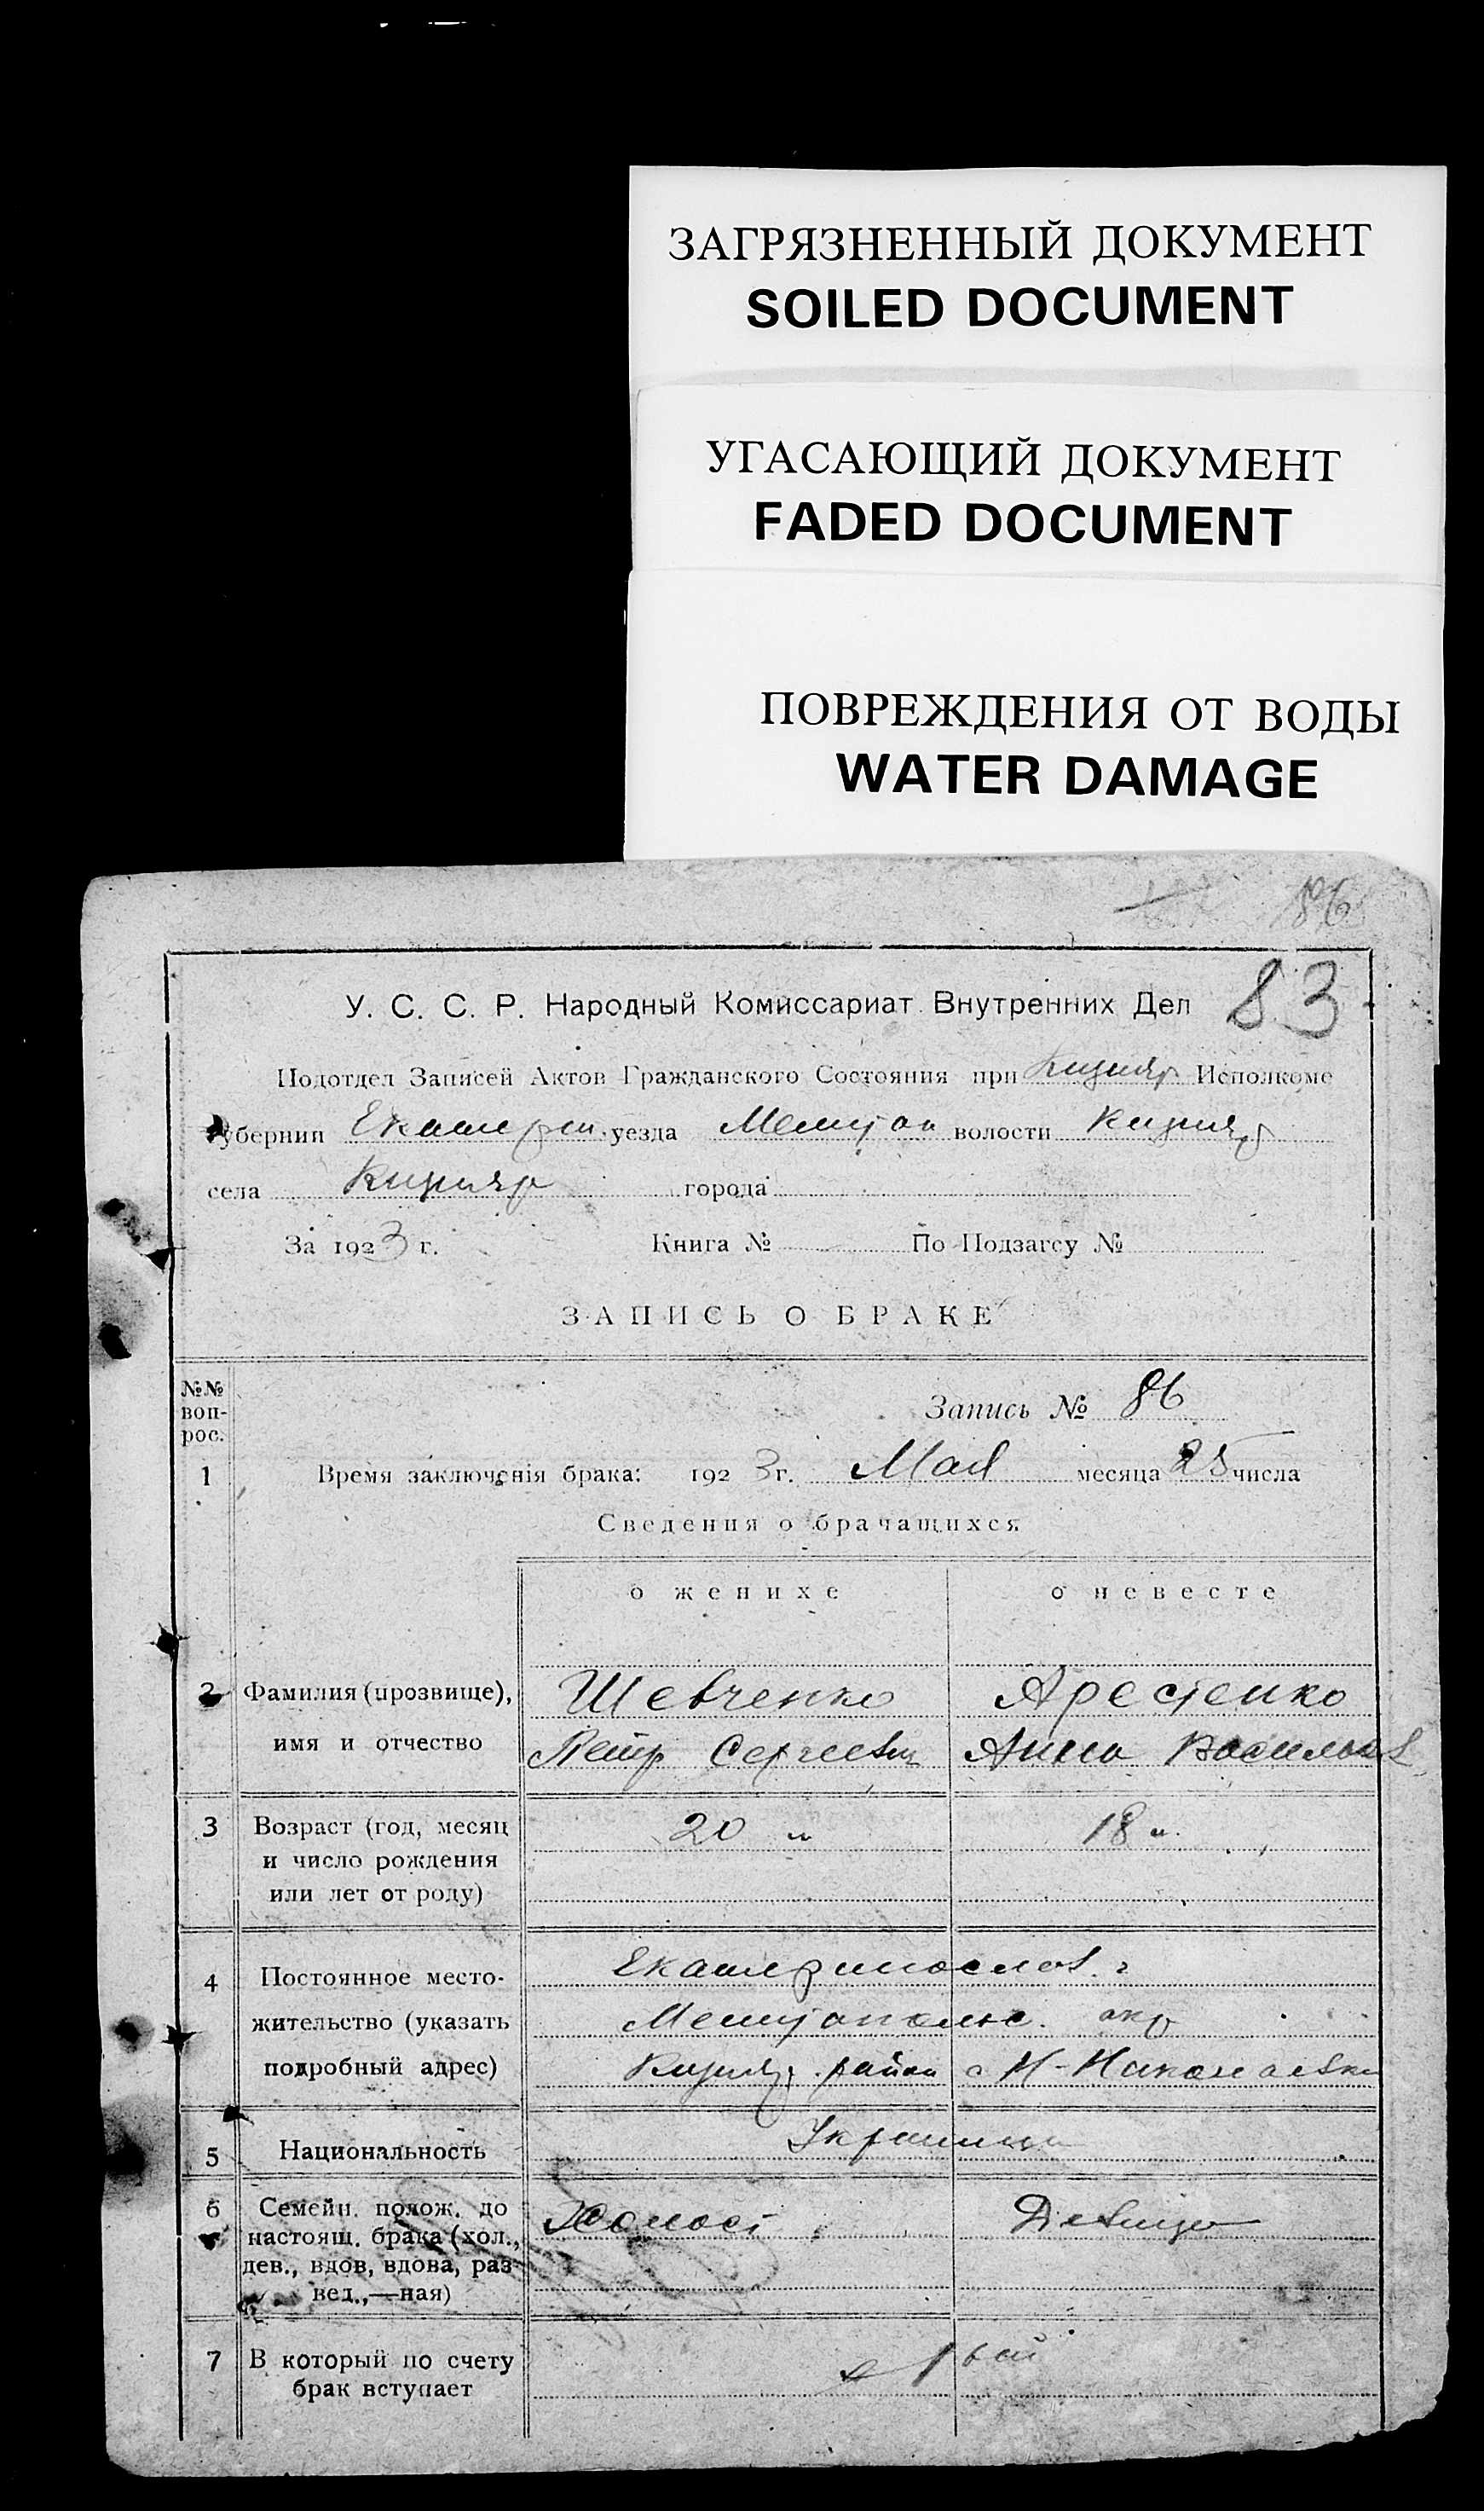 ЗАГРЯЗНЕННЫЙ ДОКУМЕНТ
SOILED DOCUMENT
УГАСАЮЩИЙ ДОКУМЕНТ
FADED DOCUMENT
ПОВРЕЖДЕНИЯ ОТ ВОДЫ
WATER DAMAGE
86
83
У. С. С. Р. Народный Комиссариат Внутренних Дел
Подотдел Записей Актов Гражданского Состояния при Кизияр Исполкоме
Губернии Екатерин. уезда Мелитоп волости Кизияр
села Кизияр города
За 1923 г. Книга № По Подзагсу №
ЗАПИСЬ О БРАКЕ
№№ вопрос.
Запись № 86
1 Время заключенія брака: 1923 г. Мая месяца 25 числа
Сведения о брачащихся
о женихе о невесте
2 Фамилия (прозвище), Шевченко Арестенко
имя и отчество Петр Сергеевич Анна Васильев
3 Возраст (год, месяц 20 л 18 л.
и число рождения
или лет от роду)
4 Постоянное место- Екатеринослав. г
жительство (указать Мелитопольс. окр
подробный адрес) Кизияр. район с Н-Николаевка
5 Национальность Украинцы
6 Семейн. полож. до Холост Девица
настоящ. брака (хол.,
дев., вдов, вдова, раз-
вед.,—ная)
7 В который по счету в 1 вый
брак вступает